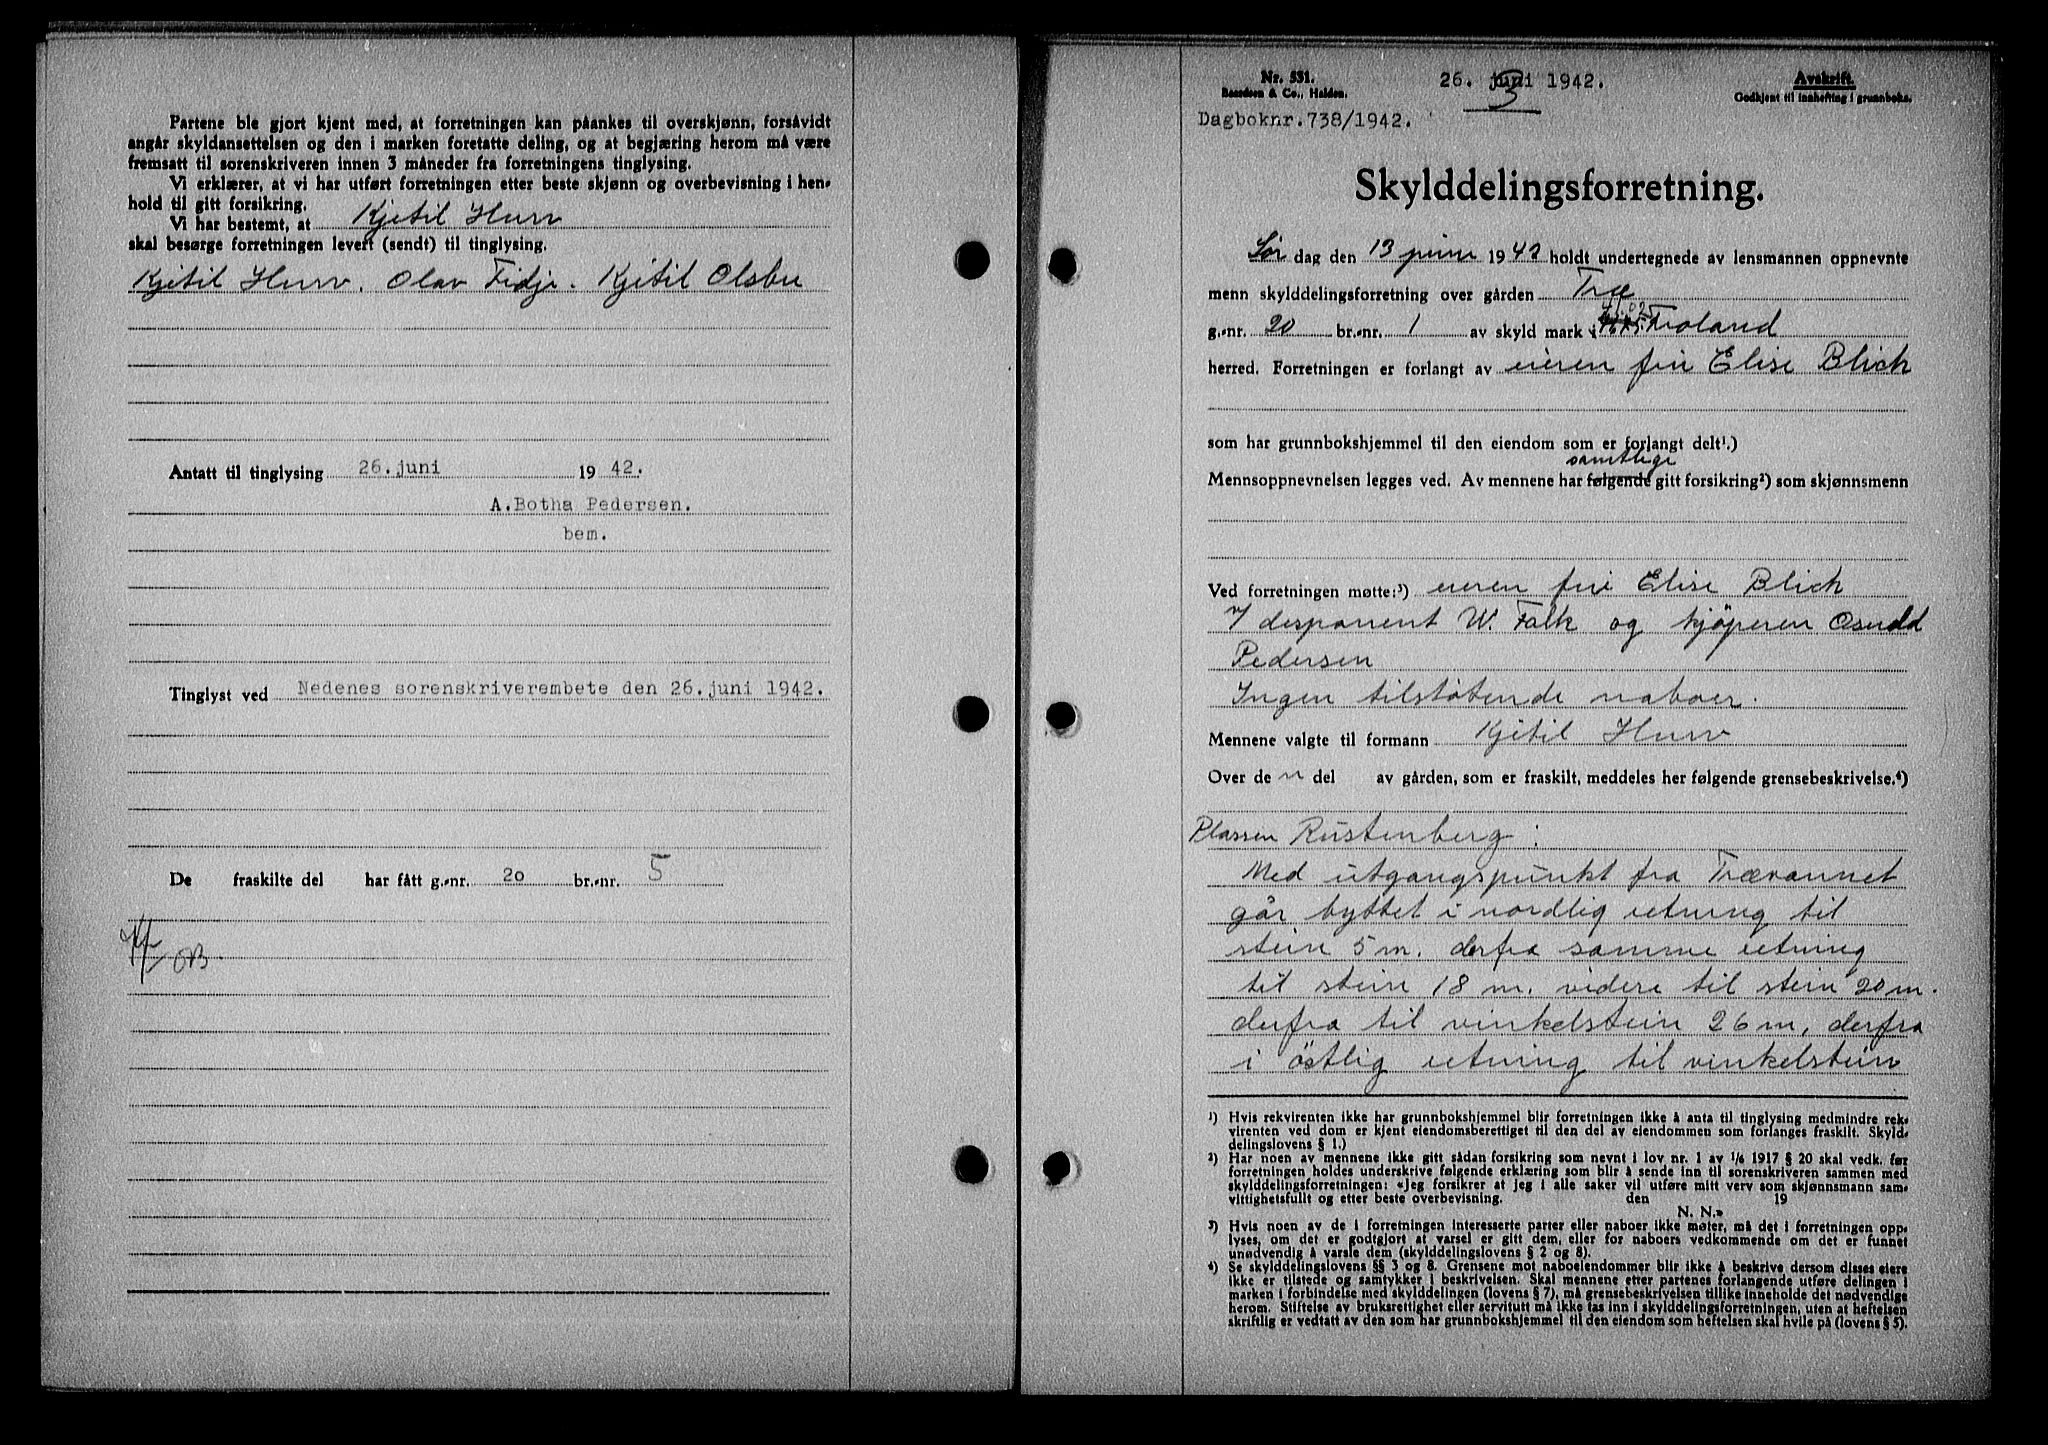 Partene ble gjort kjent med, at forretningen kan påankes til overskjønn, forsåvidt
angår skyldansettelsen og den i marken foretatte deling, og at begjæring herom må være
fremsatt til sorenskriveren innen 3 måneder fra forretningens tinglysing.
Vi erklærer, at vi har utført forretningen etter beste skjønn og overbevisning i hen-
hold til gitt forsikring.
Vi har bestemt, at Kjetil Hurv
skal besørge forretningen levert (sendt) til tinglysing.
Kjetil Hurv. Olav Fidje. Kjetil Olsbu
Antatt til tinglysing 26. juni 1942.
A. Botha Pedersen.
bem.
Tinglyst ved Nedenes sorenskriverembete den 26. juni 1942.
De fraskilte del har fått g.-nr. 20 br.-nr. 5
OB.
Nr. 531.
Co., Halden.
26. juni 1942.
3
Avskrift.
Godkjent til innhefting i grunnboka.
Dagboknr. 738/1942.
Skylddelingsforretning.
Lør dag den 13 juni 1942 holdt undertegnede av lensmannen oppnevnte
menn skylddelingsforretning over gården Træ
g.-nr. 20 br.-nr. 1 av skyld mark i Froland
herred. Forretningen er forlangt av eieren fru Elise Blich
som har grunnbokshjemmel til den eiendom som er forlangt delt¹.)
samtlige
Mennsoppnevnelsen legges ved. Av mennene har følgende gitt forsikring²) som skjønnsmenn
Ved forretningen møtte:³) eieren fru Elise Blich
v/ disponent W. Falk og kjöperen Osuld
Pedersen
Ingen tilstøtende naboer.
Mennene valgte til formann Kjetil Hurv
Over de n del av gården, som er fraskilt, meddeles her følgende grensebeskrivelse.⁴)
Plassen Rustenberg:
Med utgangspunkt fra Trævannet
går byttet i nordlig retning til
stein 5 m. derfra samme retning
til stein 18 m. videre til stein 20 m.
derfra til vinkelstein 26 m, derfra
i östlig retning til vinkelstein
¹) Hvis rekvirenten ikke har grunnbokshjemmel blir forretningen ikke å anta til tinglysing medmindre rek-
virenten ved dom er kjent eiendomsberettiget til den del av eiendommen som forlanges fraskilt. Skyld-
delingslovens § 1.)
²) Har noen av mennene ikke gitt sådan forsikring som nevnt i lov nr. 1 av 1/6 1917 § 20 skal vedk. før
forretningen holdes underskrive følgende erklæring som blir å sende inn til sorenskriveren sammen med
skylddelingsforretningen: «Jeg forsikrer at jeg i alle saker vil utføre mitt verv som skjønnsmann sam-
vittighetsfullt og etter beste overbevisning. den 19
N. N.»
³) Hvis noen av de i forretningen interesserte parter eller naboer ikke møter, må det i forretningen opp-
lyses, om det er godtgjort at varsel er gitt dem, eller for naboers vedkommende om det er funnet
unødvendig å varsle dem (skylddelingslovens § 2 og 8).
⁴) Se skylddelingslovens §§ 3 og 8. Grensene mot naboeiendommer blir ikke å beskrive dersom disses eiere
ikke er tilstede og samtykker i beskrivelsen. Skal mennene etter partenes forlangende utføre delingen i
marken i forbindelse med skylddelingen (lovens § 7), må grensebeskrivelsen tillike inneholde det nødvendige
herom. Stiftelse av bruksrettighet eller servitutt må ikke tas inn i skylddelingsforretningen, uten at heftelsen
skriftlig er vedtatt av den som har grunnbokshjemmel til den eiendom som heftelsen skal hvile på (lovens § 5).